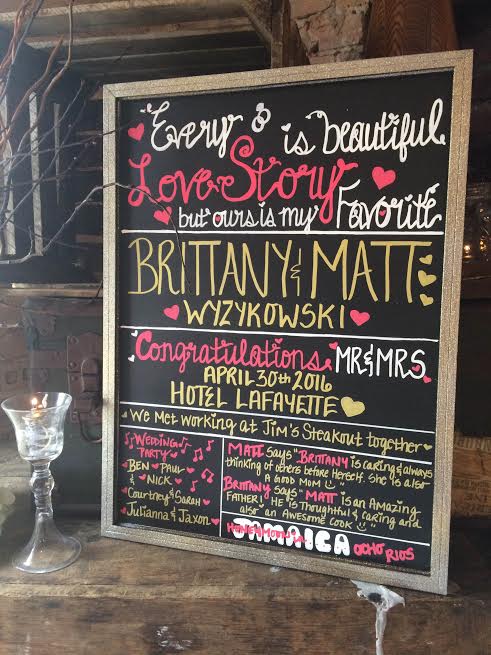 "Every is beautiful
Love Story
but ours is my Favorite
BRITTANY & MATT
WYZYKOWSKI
Congratulations MR & MRS
APRIL 30th 2016
HOTEL LAFAYETTE
We Met working at Jim's Steakout together
WEDDING
PARTY
BEN PAUL
& NICK
Courtney & Sarah
Julianna & Jaxon
MATT says "BRITTANY is caring & always
thinking of others before Herself. She is also
A Good Mom
BRITTANY says "MATT is an Amazing
FATHER! HE is Thoughtful & Caring and
also an Awesome Cook
HONEYMOON in
JAMAICA OCHO RIOS